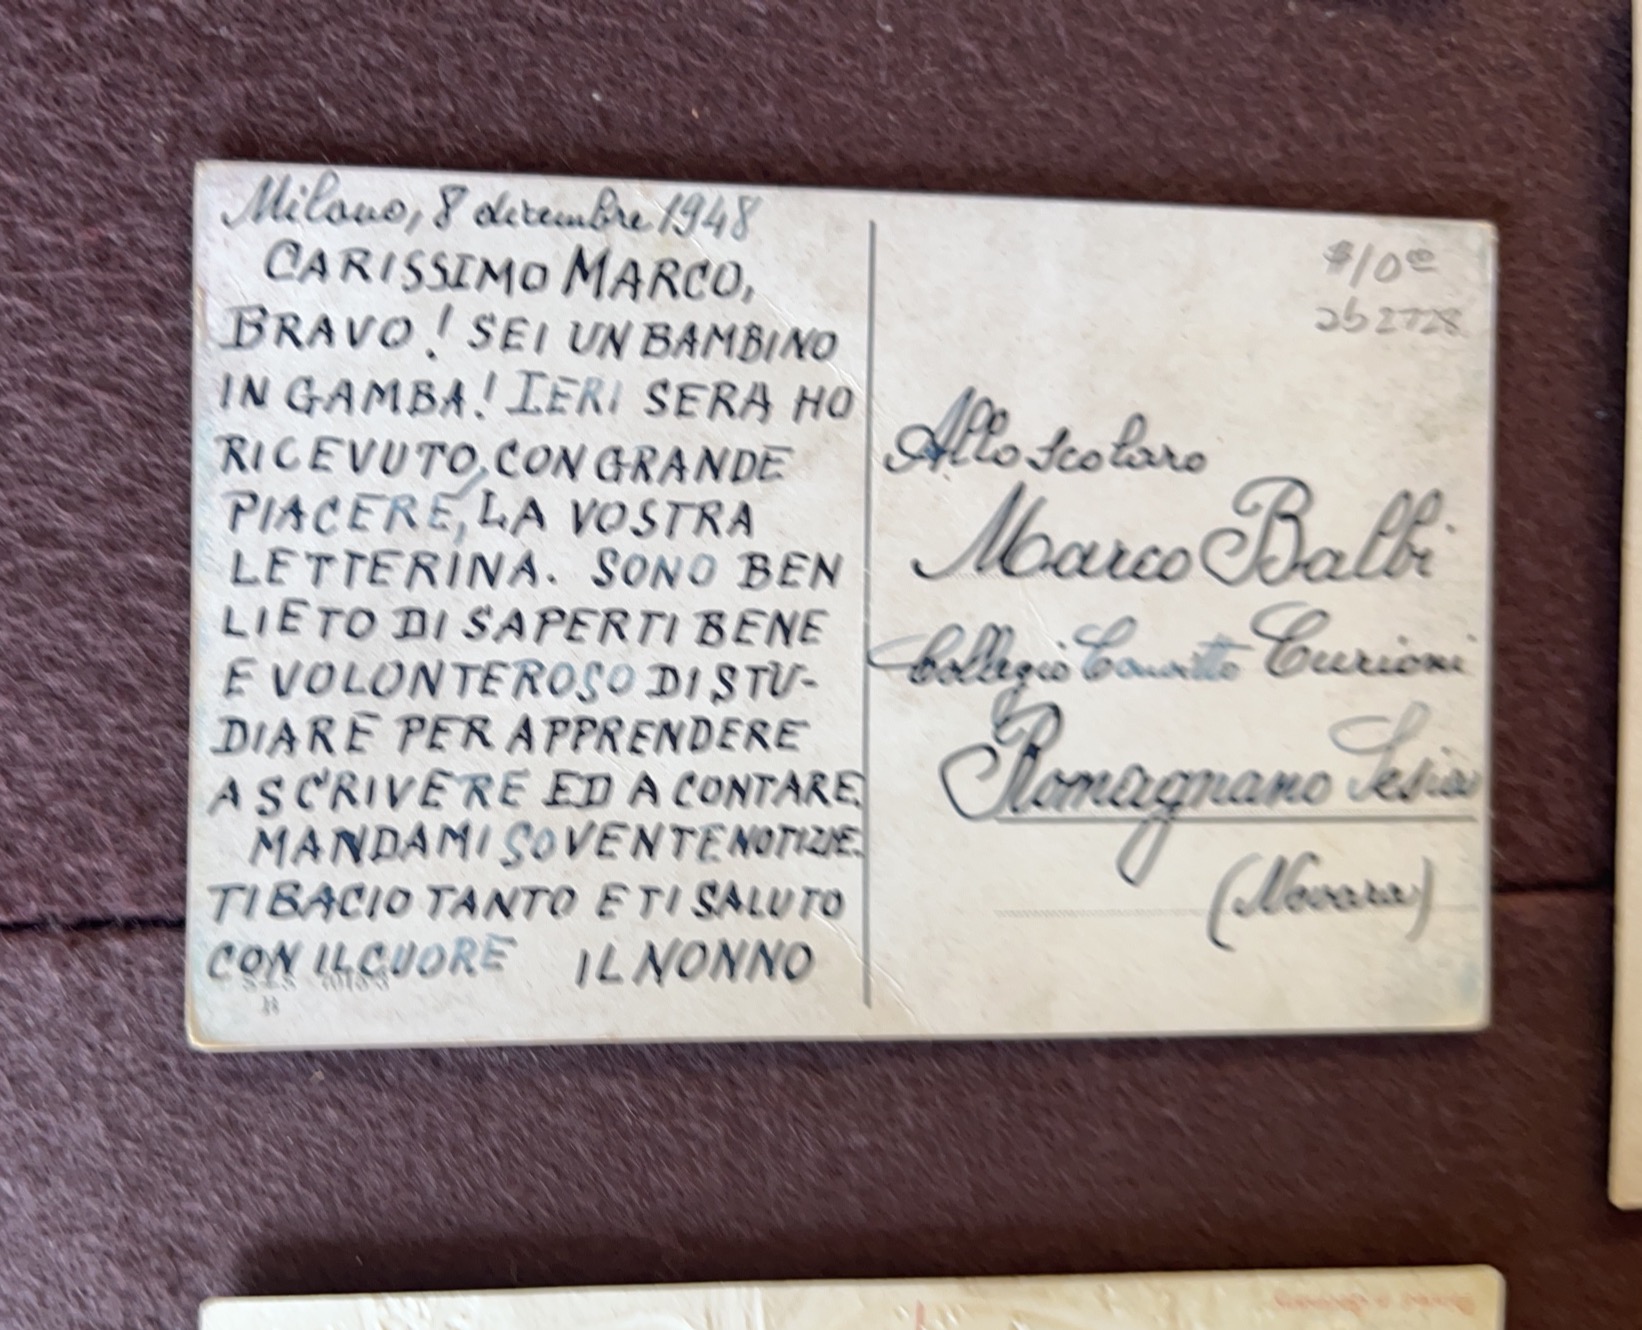 Milano, 8 dicembre 1948
CARISSIMO MARCO,
BRAVO! SEI UN BAMBINO
IN GAMBA! IERI SERA HO
RICEVUTO, CON GRANDE
PIACERE, LA VOSTRA
LETTERINA. SONO BEN
LIETO DI SAPERTI BENE
E VOLONTEROSO DI STU-
DIARE PER APPRENDERE
A SCRIVERE ED A CONTARE.
MANDAMI SOVENTE NOTIZIE.
TI BACIO TANTO E TI SALUTO
CON IL CUORE IL NONNO
B
$1000
2b2728
Allo scolaro
Marco Balbi
Collegio Convitto Curioni
Romagnano Sesia
(Novara)